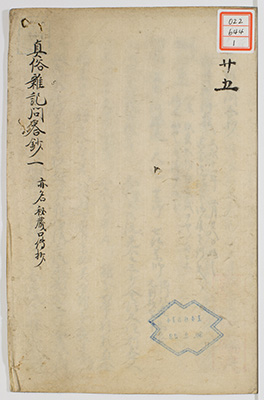 022
644
1
廿五
真俗雜記問答鈔一
亦名秘蔵口傳抄